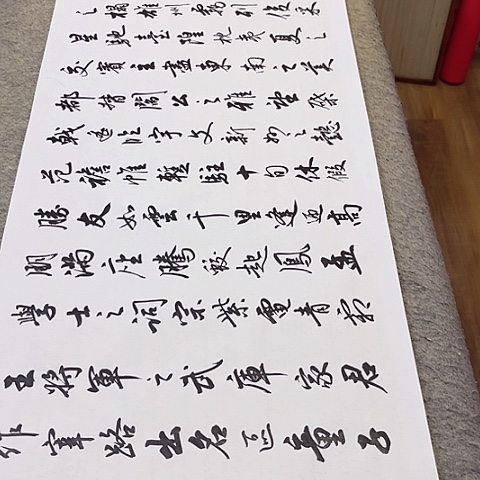 之榻雄州霧列俊采
星馳臺隍枕夷夏之
交賓主盡東南之美
都督閻公之雅望棨
戟遙臨宇文新州之懿
范襜帷暫駐十旬休假
勝友如雲千里逢迎高
朋滿座騰蛟起鳳孟
學士之詞宗紫電青霜
王將軍之武庫家君
作宰路出名區童子